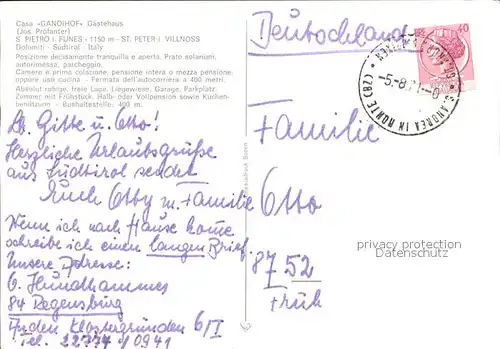 Casa «GANDIHOF» Gästehaus
(Jos. Profanter)
S. PIETRO i. FUNES - 1150 m - ST. PETER i. VILLNÖSS
Dolomiti - Südtirol - Italy
Posizione decisamente tranquilla e aperta. Prato solarium,
autorimessa, parcheggio.
Camera e prima colazione, pensione intera o mezza pensione
oppure uso cucina - Fermata dell'autocorriera a 400 metri.
Absolut ruhige, freie Lage. Liegewiese, Garage, Parkplatz.
Zimmer mit Frühstück, Halb- oder Vollpension sowie Küchen-
benützung - Bushaltestelle: 400 m.
Lb. Gitte u. Otto!
Herzliche Urlaubsgrüße
aus Südtirol sendet
Euch Otty m. Familie
Wenn ich nach Hause kome
schreibe ich einen langen Brief.
Unsere Adresse:
O. Hundhammer
84 Regensburg
In den Klostergründen 6/I
Tel. 22774 / 0941
Deutschland
40
S. ANDREA IN MONTE (BZ)
-5-8
Familie
Otto
8752
Früh
proposte © www.ansichtskarten-center.de
Datenschutz